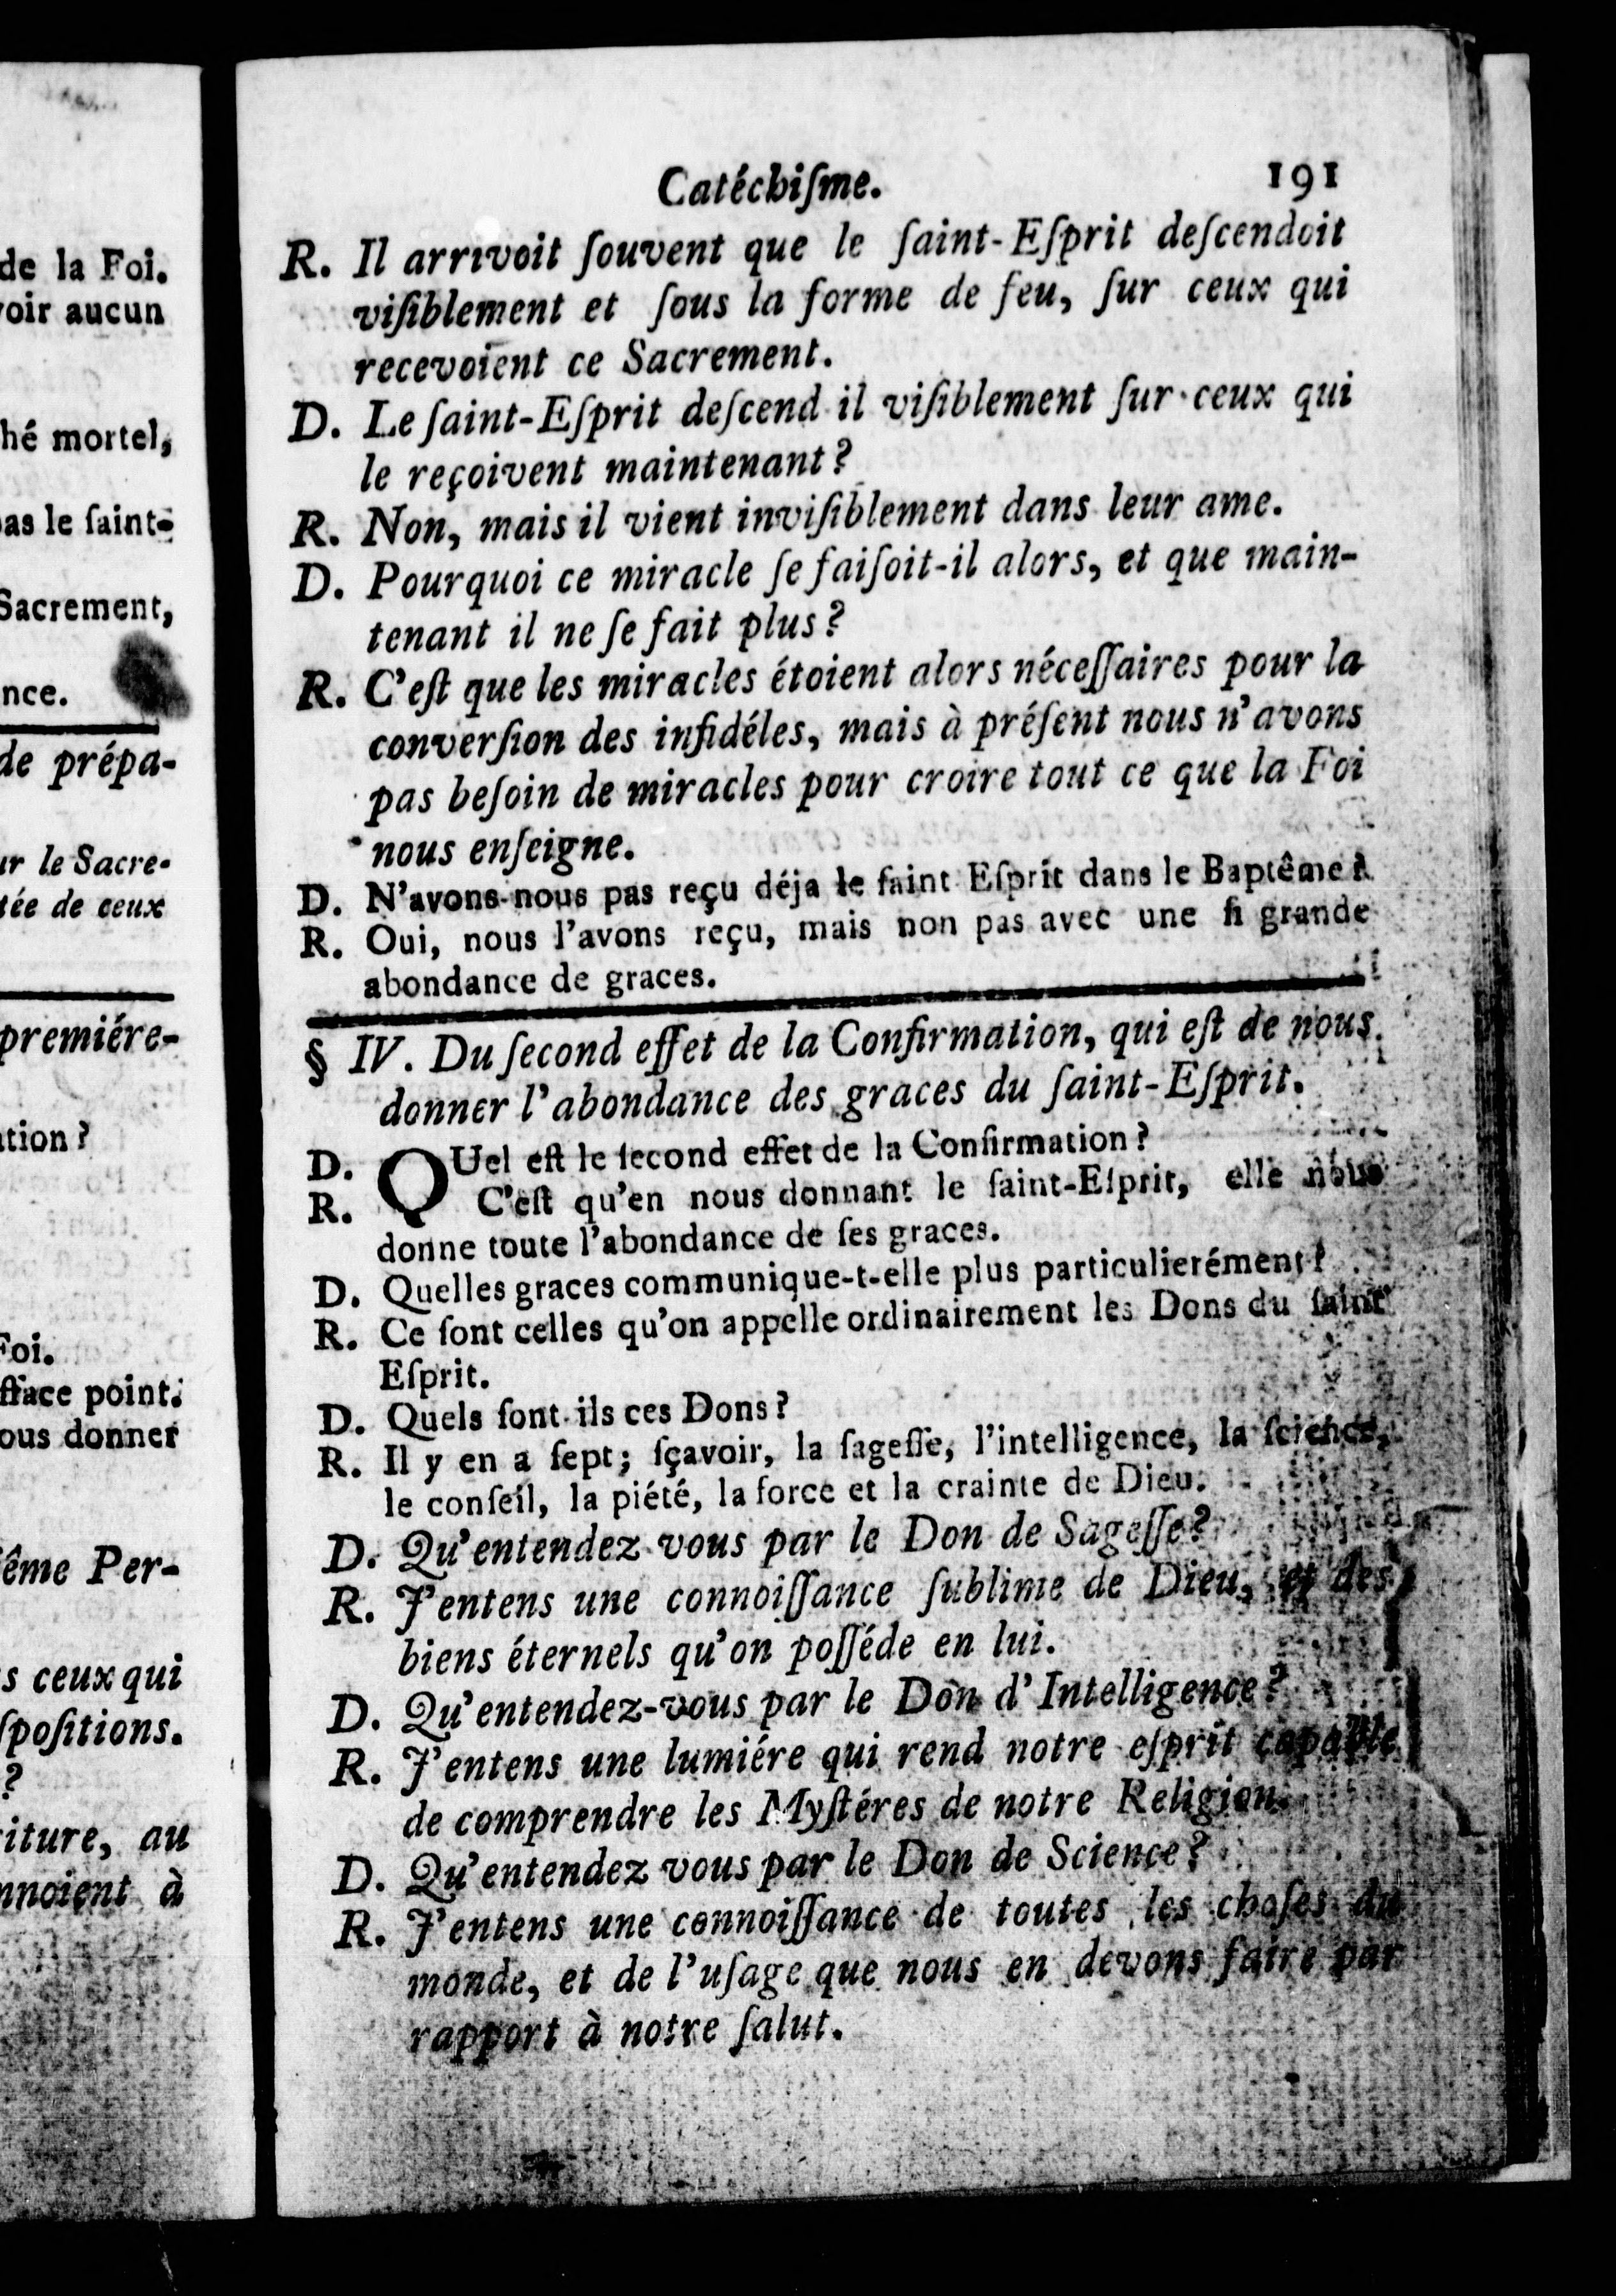 de la Foi.
voir aucun
hé mortel,
pas le ſaint-
Sacrement,
nce.
de prépa-
ur le Sacre-
tée de ceux
premiére-
ation ?
Foi.
fface point.
ous donner
ême Per-
s ceux qui
ſpoſitions.
?
riture, au
nnoient à
Catéchiſme. 191
R. Il arrivoit ſouvent que le ſaint-Eſprit deſcendoit
viſiblement et ſous la forme de feu, ſur ceux qui
recevoient ce Sacrement.
D. Le ſaint-Eſprit deſcend il viſiblement ſur ceux qui
le reçoivent maintenant ?
R. Non, mais il vient inviſiblement dans leur ame.
D. Pourquoi ce miracle ſe faiſoit-il alors, et que main-
tenant il ne ſe fait plus ?
R. C'eſt que les miracles étoient alors néceſſaires pour la
converſion des infidéles, mais à préſent nous n'avons
pas beſoin de miracles pour croire tout ce que la Foi
nous enſeigne.
D. N'avons-nous pas reçu déja le ſaint Eſprit dans le Baptême ?
R. Oui, nous l'avons reçu, mais non pas avec une ſi grande
abondance de graces.
§ IV. Du ſecond effet de la Confirmation, qui eſt de nous
donner l'abondance des graces du ſaint-Eſprit.
D. QUel eſt le ſecond effet de la Confirmation ?
R. C'eſt qu'en nous donnant le ſaint-Eſprit, elle nous
donne toute l'abondance de ſes graces.
D. Quelles graces communique-t-elle plus particulierément ?
R. Ce ſont celles qu'on appelle ordinairement les Dons du ſaint
Eſprit.
D. Quels ſont ils ces Dons ?
R. Il y en a ſept ; ſçavoir, la ſageſſe, l'intelligence, la ſcience,
le conſeil, la piété, la force et la crainte de Dieu.
D. Qu'entendez vous par le Don de Sageſſe ?
R. J'entens une connoiſſance ſublime de Dieu, et des
biens éternels qu'on poſſéde en lui.
D. Qu'entendez-vous par le Don d'Intelligence ?
R. J'entens une lumiére qui rend notre eſprit capable
de comprendre les Myſtéres de notre Religion.
D. Qu'entendez vous par le Don de Science ?
R. J'entens une connoiſſance de toutes les choſes du
monde, et de l'uſage que nous en devons faire par
rapport à notre ſalut.